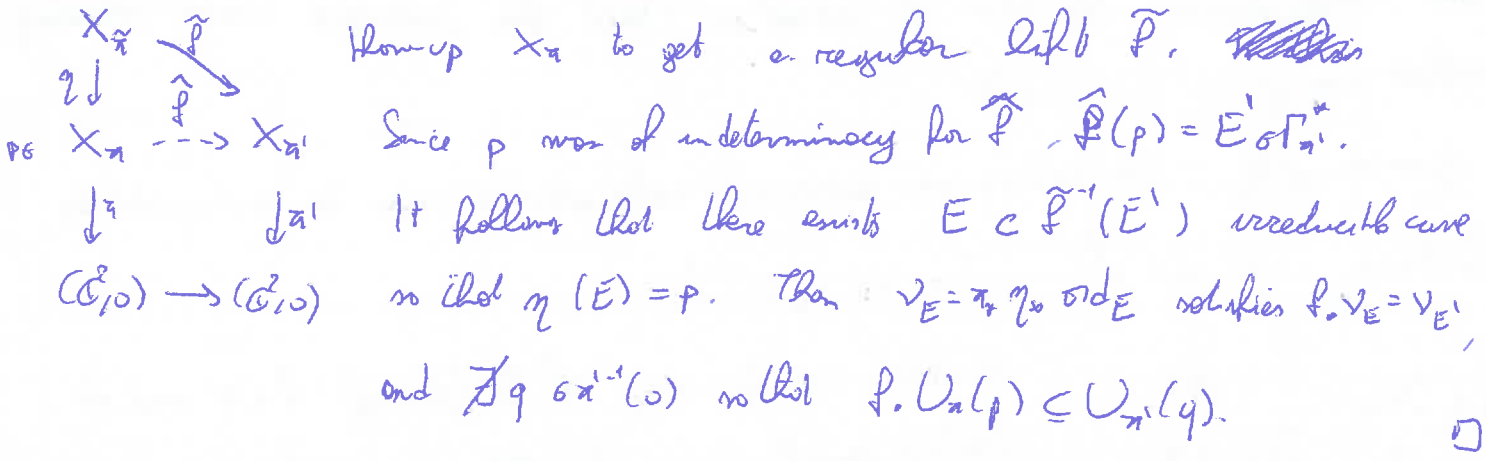 X_π̃ f̃ Blow-up X_π to get a regular lift f̃.
η ↓ f̃
p ∈ X_π ⇢ X_π' Since p was of indeterminacy for f̃, f̂(p) = E' ∈ Γ_π'^*.
↓π ↓π' It follows that there exists E ⊂ f̃^{-1}(E') irreducible curve
(ℂ²,0) → (ℂ²,0) so that η(E) = p. Then ν_E = π_* η_* ord_E satisfies f_• ν_E = ν_E',
and ∄ q ∈ π'^{-1}(0) so that f_• U_π(p) ⊆ U_π'(q).
□